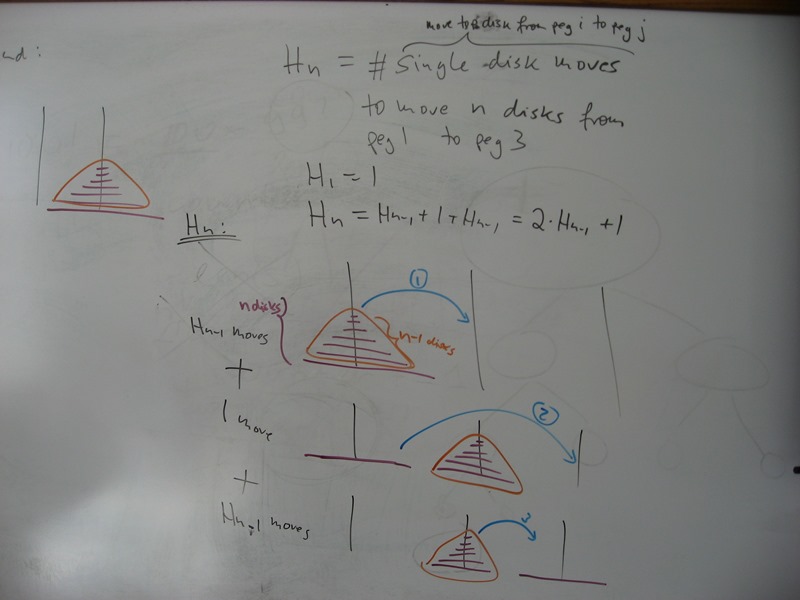 nd:
move top disk from peg i to peg j
Hn = # single-disk moves
to move n disks from
peg 1 to peg 3
H1 = 1
Hn = Hn-1 + 1 + Hn-1 = 2·Hn-1 + 1
Hn:
1
n disks
n-1 disks
Hn-1 moves
+
1 move
2
+
Hn-1 moves
3